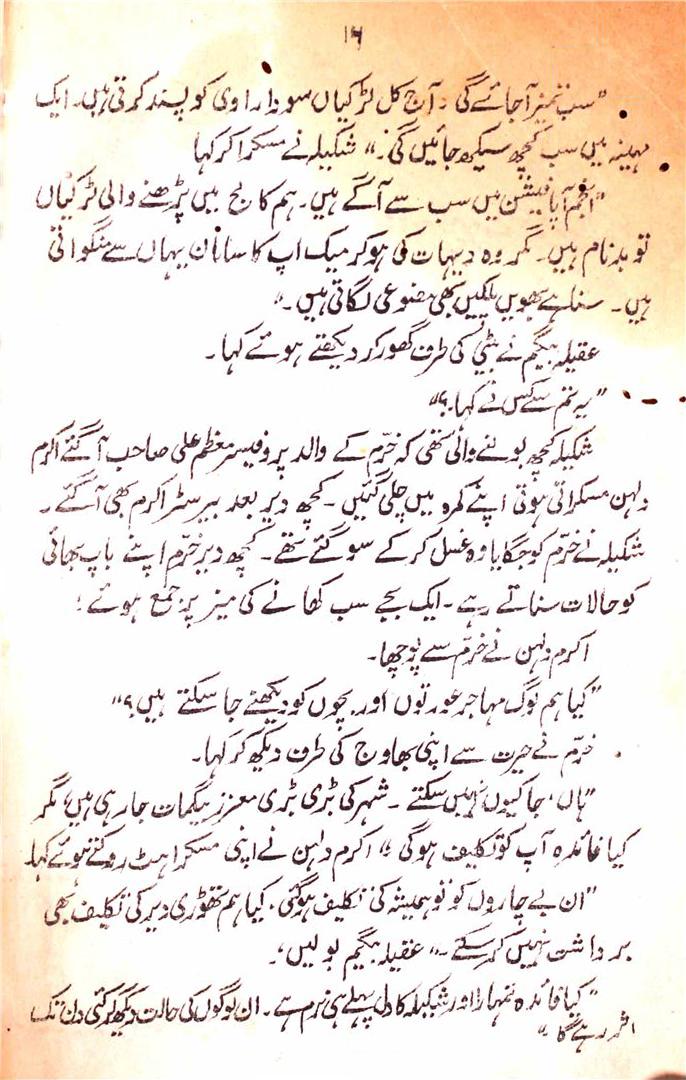 ۱۶
"سب تمیز آ جائے گی۔ آج کل لڑکیاں سودا راوی کو پسند کرتی ہیں۔ ایک
مہینہ میں سب کچھ سیکھ جائیں گی۔" شکیلہ نے مسکرا کر کہا
"انجم آپا فیشن میں سب سے آگے ہیں۔ ہم کالج میں پڑھنے والی لڑکیاں
تو بدنام ہیں۔ مگر وہ دیہات کی ہو کر میک اپ کا سامان یہاں سے منگواتی
ہیں۔ سنا ہے بھویں پلکیں بھی مصنوعی لگاتی ہیں۔"
عقیلہ بیگم نے بیٹی کی طرف گھور کر دیکھتے ہوئے کہا۔
"یہ تم سے کس نے کہا۔؟"
شکیلہ کچھ بولنے والی تھی کہ خرّم کے والد پروفیسر معظم علی صاحب آ گئے اکرم
دلہن مسکراتی ہوئی اپنے کمرہ میں چلی گئیں۔ کچھ دیر بعد بیرسٹر اکرم بھی آ گئے۔
شکیلہ نے خرّم کو جگایا وہ غسل کر کے سو گئے تھے۔ کچھ دیر خرّم اپنے باپ بھائی
کو حالات سناتے رہے۔ ایک بجے سب کھانے کی میز پر جمع ہوئے؛
اکرم دلہن نے خرّم سے پوچھا۔
"کیا ہم لوگ مہاجر عورتوں اور بچوں کو دیکھنے جا سکتے ہیں؟"
خرّم نے حیرت سے اپنی بھاوج کی طرف دیکھ کر کہا۔
"ہاں، جا کیوں نہیں سکتے۔ شہر کی بڑی بڑی معزز بیگمات جا رہی ہیں، مگر
کیا فائدہ آپ کو تکلیف ہو گی" اکرم دلہن نے اپنی مسکراہٹ روکتے ہوئے کہا۔
"ان بے چاروں کو تو ہمیشہ کی تکلیف ہو گئی۔ کیا ہم تھوڑی دیر کی تکلیف بھی
برداشت نہیں کر سکتے۔" عقیلہ بیگم بولیں،۔
"کیا فائدہ تمہارا اور شکیلہ کا دل پہلے ہی نرم ہے۔ ان لوگوں کی حالت دیکھ کر کئی دن تک
اثر رہے گا۔"